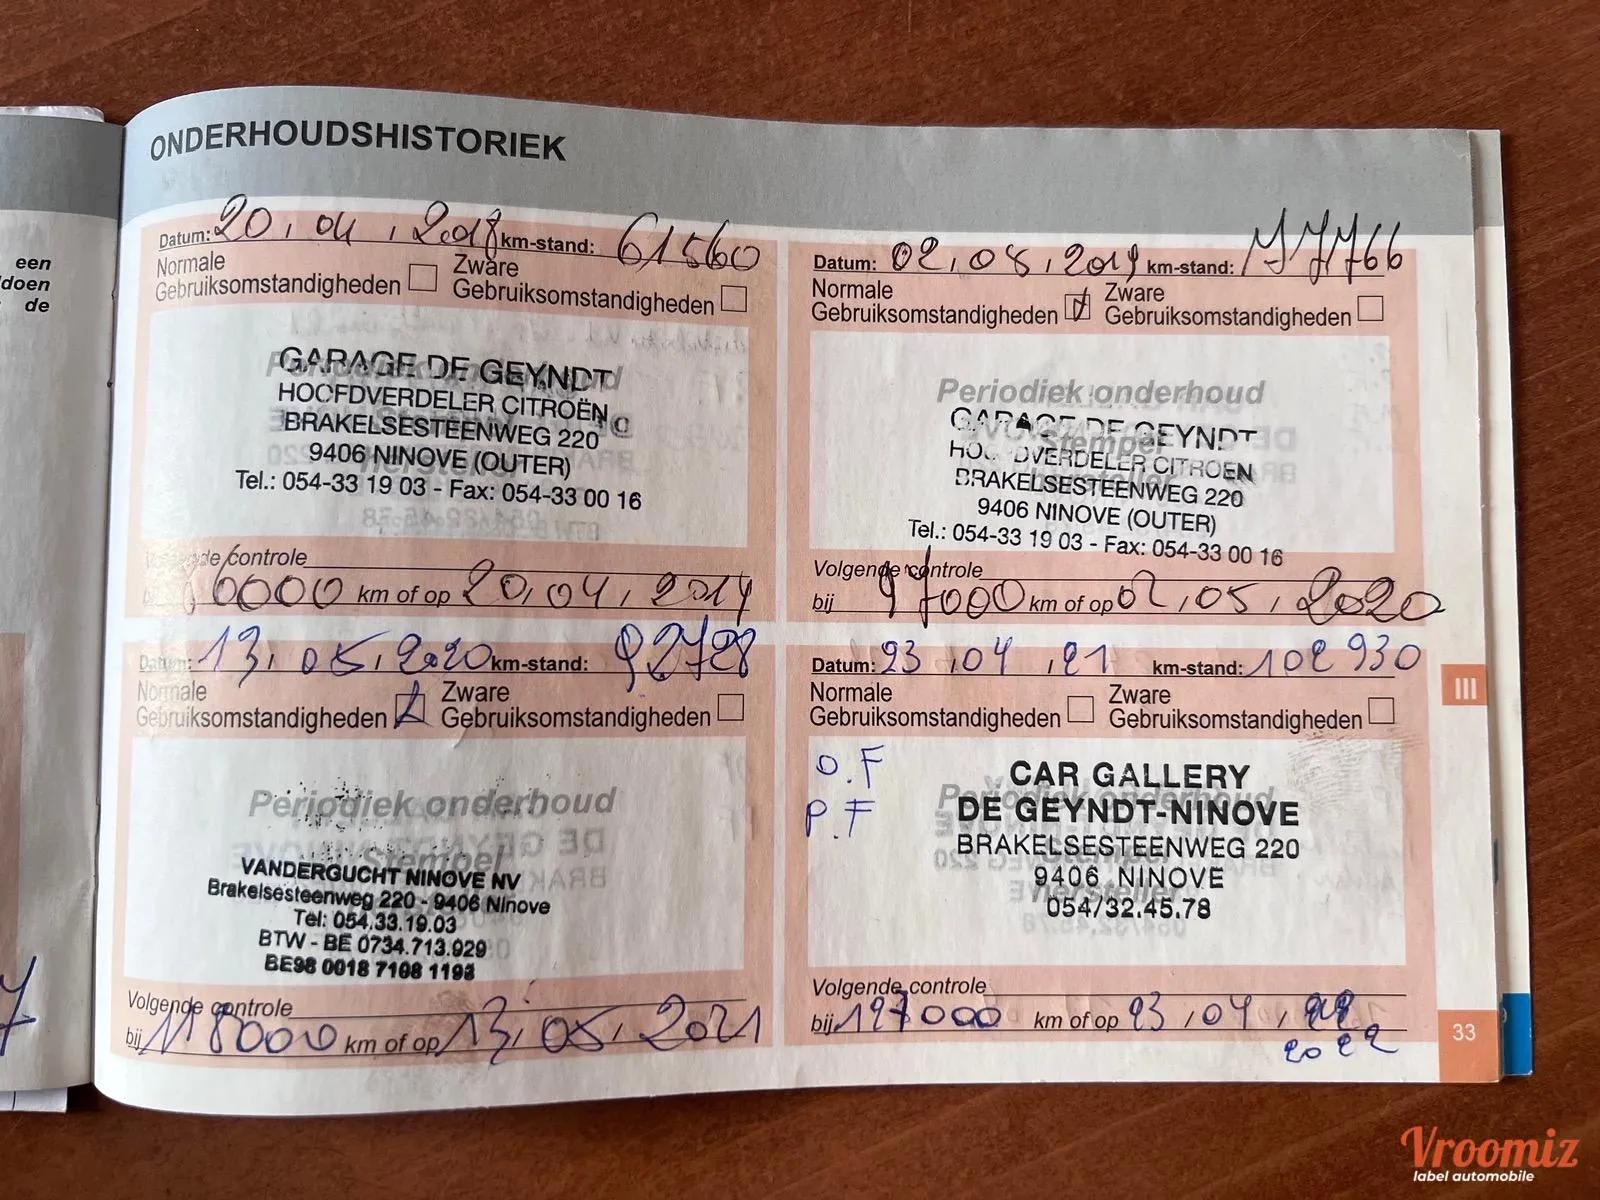 ONDERHOUDSHISTORIEK
een
doen
de
Datum: 20.04.2018 km-stand: 61560
Normale Gebruiksomstandigheden
Zware Gebruiksomstandigheden
GARAGE DE GEYNDT
HOOFDVERDELER CITROËN
BRAKELSESTEENWEG 220
9406 NINOVE (OUTER)
Tel.: 054-33 19 03 - Fax: 054-33 00 16
Volgende controle
km of op 20.04.2019
Datum: 02.05.2019 km-stand: 77766
Normale Gebruiksomstandigheden
Zware Gebruiksomstandigheden
Periodiek onderhoud
Stempel
GARAGE DE GEYNDT
HOOFDVERDELER CITROEN
BRAKELSESTEENWEG 220
9406 NINOVE (OUTER)
Tel.: 054-33 19 03 - Fax: 054-33 00 16
Volgende controle
bij 97000 km of op 02.05.2020
Datum: 13.05.2020 km-stand: 92728
Normale Gebruiksomstandigheden
Zware Gebruiksomstandigheden
Periodiek onderhoud
Stempel
VANDERGUCHT NINOVE NV
Brakelsesteenweg 220 - 9406 Ninove
Tel: 054.33.19.03
BTW - BE 0734.713.929
BE98 0018 7108 1193
Volgende controle
bij 118000 km of op 13.05.2021
Datum: 23.04.21 km-stand: 102930
Normale Gebruiksomstandigheden
Zware Gebruiksomstandigheden
O.F
P.F
CAR GALLERY
DE GEYNDT-NINOVE
BRAKELSESTEENWEG 220
9406 NINOVE
054/32.45.78
Volgende controle
bij 127000 km of op 23.04.22
2022
III
33
Vroomiz
label automobile